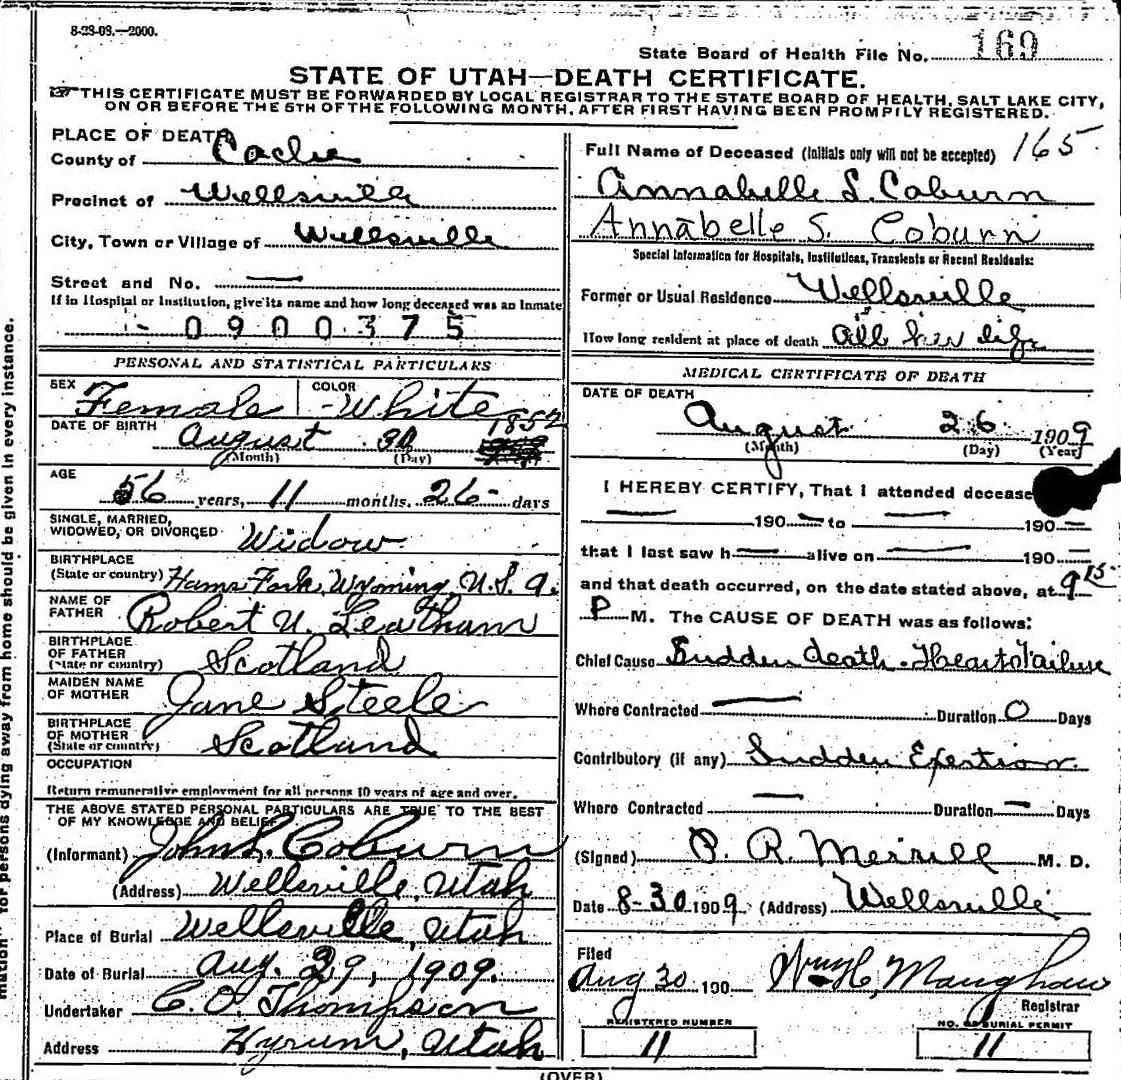 8-23-09.—2000.
State Board of Health File No. 169
STATE OF UTAH—DEATH CERTIFICATE.
THIS CERTIFICATE MUST BE FORWARDED BY LOCAL REGISTRAR TO THE STATE BOARD OF HEALTH, SALT LAKE CITY,
ON OR BEFORE THE 5TH OF THE FOLLOWING MONTH, AFTER FIRST HAVING BEEN PROMPILY REGISTERED.
PLACE OF DEATH
County of Cache
Precinct of Wellsville
City, Town or Village of Wellsville
Street and No. —
If in Hospital or Institution, give its name and how long deceased was an Inmate
- 0900375
PERSONAL AND STATISTICAL PARTICULARS
SEX Female COLOR White
DATE OF BIRTH August 30 1852
(Month) (Day)
AGE 56 years, 11 months, 26 days
SINGLE, MARRIED,
WIDOWED, OR DIVORCED Widow
BIRTHPLACE
(State or country) Hams Fork, Wyoming, U.S.A.
NAME OF
FATHER Robert U. Leatham
BIRTHPLACE
OF FATHER
(State or country) Scotland
MAIDEN NAME
OF MOTHER Jane Steele
BIRTHPLACE
OF MOTHER
(State or country) Scotland
OCCUPATION
Return remunerative employment for all persons 10 years of age and over.
THE ABOVE STATED PERSONAL PARTICULARS ARE TRUE TO THE BEST
OF MY KNOWLEDGE AND BELIEF
(Informant) John L. Coburn
(Address) Wellsville, Utah
Place of Burial Wellsville, Utah
Date of Burial Aug. 29, 1909.
Undertaker C. O. Thompson
Address Hyrum, Utah
Full Name of Deceased (Initials only will not be accepted) 165.
Annabelle S. Coburn
Annabelle S. Coburn
Special Information for Hospitals, Institutions, Transients or Recent Residents:
Former or Usual Residence Wellsville
How long resident at place of death all her life
MEDICAL CERTIFICATE OF DEATH
DATE OF DEATH
August 26 1909
(Month) (Day) (Year)
I HEREBY CERTIFY, That I attended decease
— 190 — to — 190 —
that I last saw h — alive on — 190 —
and that death occurred, on the date stated above, at 9 15
P M. The CAUSE OF DEATH was as follows:
Chief Cause Sudden death. Heart failure
Where Contracted — Duration 0 Days
Contributory (if any) Sudden Exertion.
Where Contracted — Duration — Days
(Signed) P. R. Merrill M. D.
Date 8-30 1909 (Address) Wellsville
Filed
Aug 30 190 Wm H. Maughan
Registrar
REGISTERED NUMBER
11
NO. OF BURIAL PERMIT
11
(OVER)
mation" for persons dying away from home should be given in every instance.